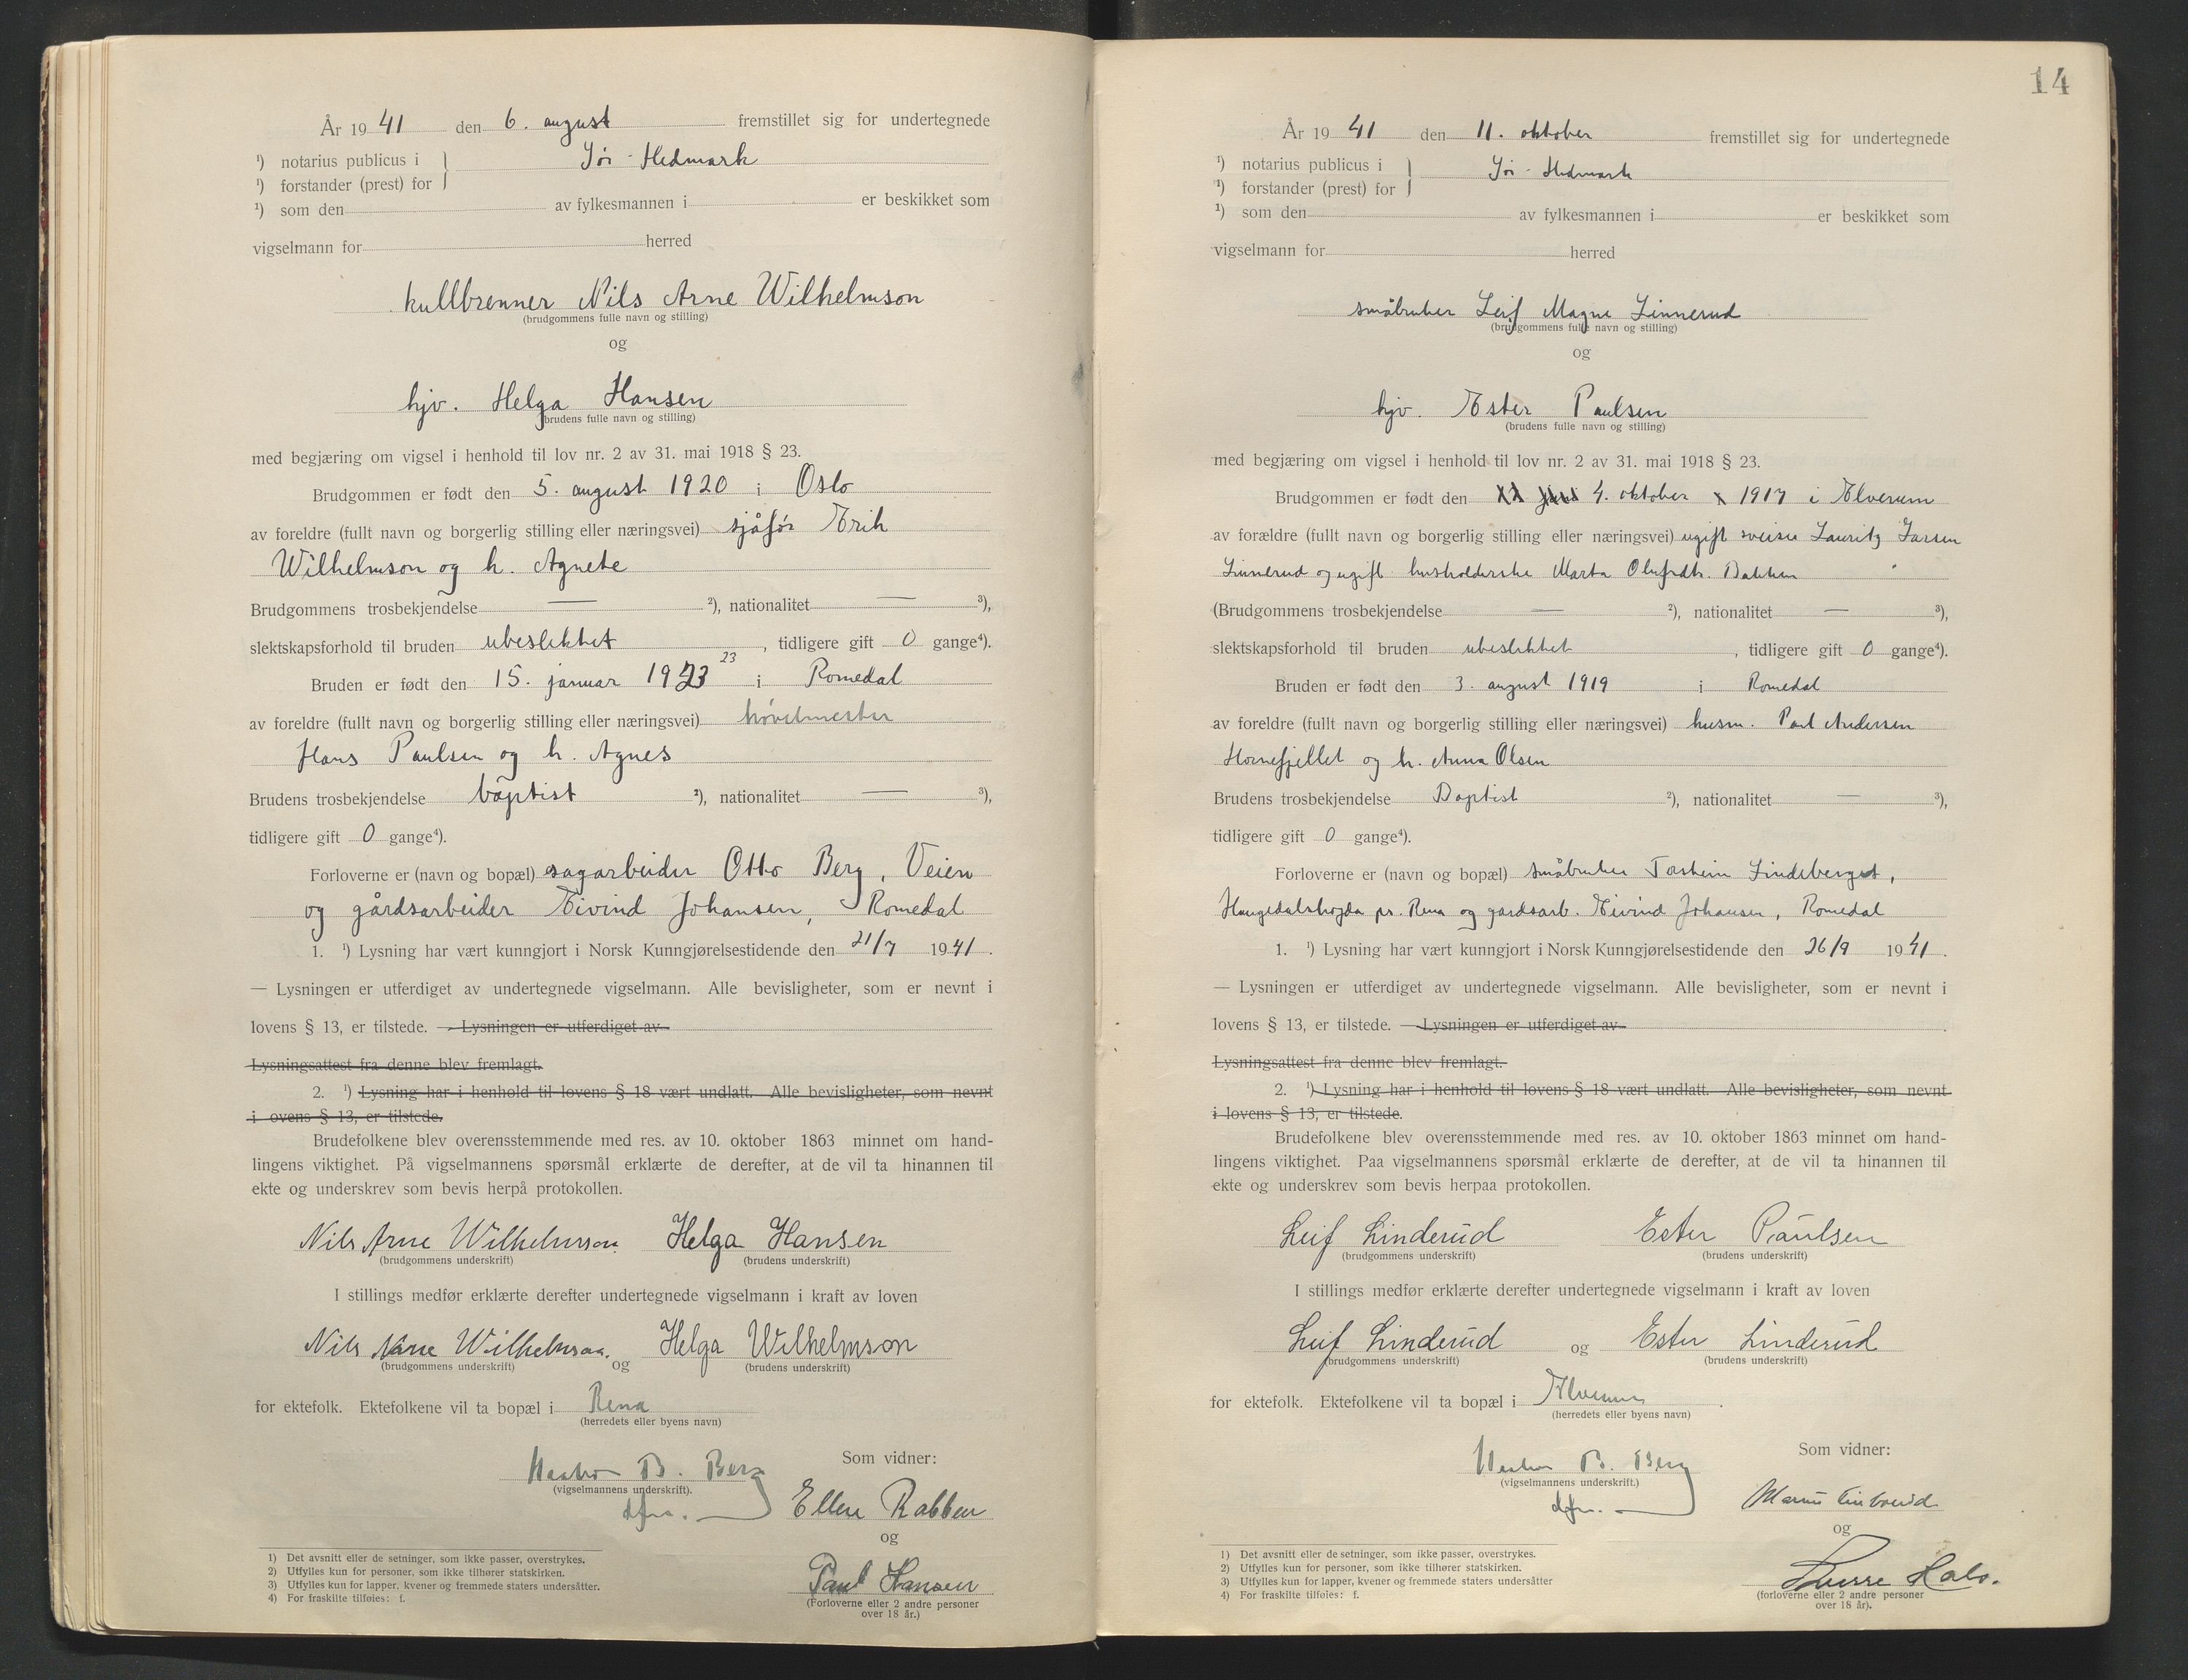 År 19 41 den 6. august fremstillet sig for undertegnede
¹) notarius publicus i } Sør-Hedmark
¹) forstander (prest) for
¹) som den av fylkesmannen i er beskikket som
vigselmann for herred
kullbrenner Nils Arne Wilhelmson
(brudgommens fulle navn og stilling)
og
hjv. Helga Hansen
(brudens fulle navn og stilling)
med begjæring om vigsel i henhold til lov nr. 2 av 31. mai 1918 § 23.
Brudgommen er født den 5. august 1920 i Oslo
av foreldre (fullt navn og borgerlig stilling eller næringsvei) sjåfør Erik
Wilhelmson og h. Agnete
Brudgommens trosbekjendelse — ²), nationalitet — ³),
slektskapsforhold til bruden ubeslektet, tidligere gift 0 gange⁴).
23
Bruden er født den 15. januar 1923 i Romedal
av foreldre (fullt navn og borgerlig stilling eller næringsvei) høvelmester
Hans Paulsen og h. Agnes
Brudens trosbekjendelse baptist ²), nationalitet — ³),
tidligere gift 0 gange⁴).
Forloverne er (navn og bopæl) sagarbeider Otto Berg, Veien
og gårdsarbeider Eivind Johansen, Romedal
1. ¹) Lysning har vært kunngjort i Norsk Kunngjørelsestidende den 21/7 1941.
— Lysningen er utferdiget av undertegnede vigselmann. Alle bevisligheter, som er nevnt i
lovens § 13, er tilstede. — Lysningen er utferdiget av
Lysningsattest fra denne blev fremlagt.
2. ¹) Lysning har i henhold til lovens § 18 vært undlatt. Alle bevisligheter, som nevnt
i ovens § 13, er tilstede.
Brudefolkene blev overensstemmende med res. av 10. oktober 1863 minnet om hand-
lingens viktighet. På vigselmannens spørsmål erklærte de derefter, at de vil ta hinannen til
ekte og underskrev som bevis herpå protokollen.
Nils Arne Wilhelmson Helga Hansen
(brudgommens underskrift) (brudens underskrift)
I stillings medfør erklærte derefter undertegnede vigselmann i kraft av loven
Nils Arne Wilhelmson og Helga Wilhelmson
(brudgommens underskrift) (brudens underskrift)
for ektefolk. Ektefolkene vil ta bopæl i Rena
(herredets eller byens navn)
Som vidner:
B. Berg
(vigselmannens underskrift).
dfm.
Ellen Rabben
og
Paul Hansen
(Forloverne eller 2 andre personer
over 18 år.)
1) Det avsnitt eller de setninger, som ikke passer, overstrykes.
2) Utfylles kun for personer, som ikke tilhører statskirken.
3) Utfylles kun for lapper, kvener og fremmede staters undersåtter.
4) For fraskilte tilføies: f.
14
År 19 41 den 11. oktober fremstillet sig for undertegnede
¹) notarius publicus i } Sør-Hedmark
¹) forstander (prest) for
¹) som den av fylkesmannen i er beskikket som
vigselmann for herred
småbruker Leif Magne Linnerud
(brudgommens fulle navn og stilling)
og
hjv. Ester Paulsen
(brudens fulle navn og stilling)
med begjæring om vigsel i henhold til lov nr. 2 av 31. mai 1918 § 23.
Brudgommen er født den 4. oktober 1917 i Elverum
av forældre (fullt navn og borgerlig stilling eller næringsvei) ugift sveiser Lauritz Larsen
Linnerud og ugift husholderske Marta Olufsdtr. Bakken
(Brudgommens trosbekjendelse — ²), nationalitet — ³),
slektskapsforhold til bruden ubeslektet, tidligere gift 0 gange⁴).
Bruden er født den 3. august 1919 i Romedal
av foreldre (fullt navn og borgerlig stilling eller næringsvei) husm. Paul Andersen
Hornefjellet og h. Anna Olsen
Brudens trosbekjendelse Baptist ²), nationalitet — ³),
tidligere gift 0 gange⁴).
Forloverne er (navn og bopæl) småbruker Torstein Lindeberget,
Haugedalshøgda pr. Rena og gårdsarb. Eivind Johansen, Romedal
1. ¹) Lysning har vært kunngjort i Norsk Kunngjørelsestidende den 26/9 1941.
— Lysningen er utferdiget av undertegnede vigselmann. Alle bevisligheter, som er nevnt i
lovens § 13, er tilstede. — Lysningen er utferdiget av
Lysningsattest fra denne blev fremlagt.
2. ¹) Lysning har i henhold til lovens § 18 vært undlatt. Alle bevisligheter, som nevnt
i lovens § 13, er tilstede.
Brudefolkene blev overensstemmende med res. av 10. oktober 1863 minnet om hand-
lingens viktighet. Paa vigselmannens spørsmål erklærte de derefter, at de vil ta hinannen til
ekte og underskrev som bevis herpaa protokollen.
Leif Linderud Ester Paulsen
(brudgommens underskrift) (brudens underskrift)
I stillings medfør erklærte derefter undertegnede vigselmann i kraft av loven
Leif Linderud og Ester Linderud
(brudgommens underskrift) (brudens underskrift)
for ektefolk. Ektefolkene vil ta bopæl i Elverum.
(herredets eller byens navn)
Som vidner:
B. Berg
(vigselmannens underskrift.)
dfm.
og
(forloverne eller 2 andre personer
over 18 år).
1) Det avsnitt eller de setninger, som ikke passer, overstrykes.
2) Utfylles kun for personer, som ikke tilhører statskirken.
3) Utfylles kun for lapper, kvener og fremmede staters undersåtter
4) For fraskilte tilføies: f.